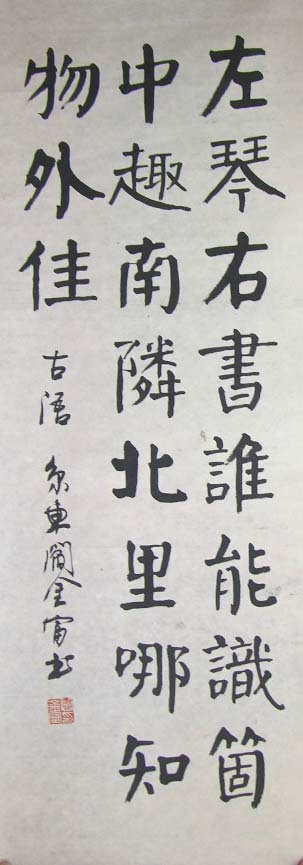 左琴右書誰能識箇
中趣南隣北里哪知
物外佳
古語 東閻金富书